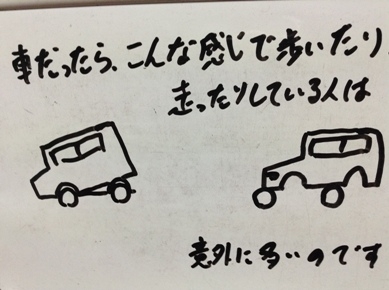 車だったら、こんな感じで歩いたり
走ったりしている人は
意外に多いのです